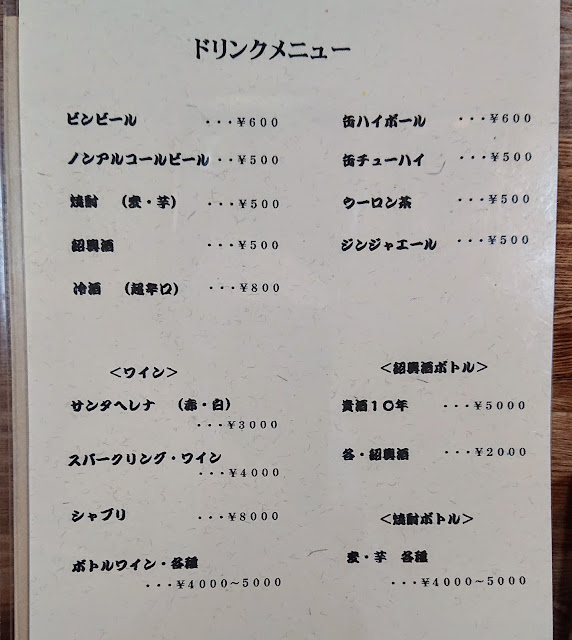 ドリンクメニュー
ビンビール ・・・¥600
ノンアルコールビール ・・¥500
焼酎 （麦・芋） ・・・¥500
紹興酒 ・・・¥500
冷酒 （超辛口） ・・・¥800
缶ハイボール ・・・¥600
缶チューハイ ・・・¥500
ウーロン茶 ・・・¥500
ジンジャエール ・・・¥500
＜ワイン＞
サンタヘレナ （赤・白）
・・・¥3000
スパークリング・ワイン
・・・¥4000
シャブリ ・・・¥8000
ボトルワイン・各種
・・・¥4000～5000
＜紹興酒ボトル＞
貴酒10年 ・・・¥5000
各・紹興酒 ・・・¥2000
＜焼酎ボトル＞
麦・芋 各種
・・・¥4000～5000